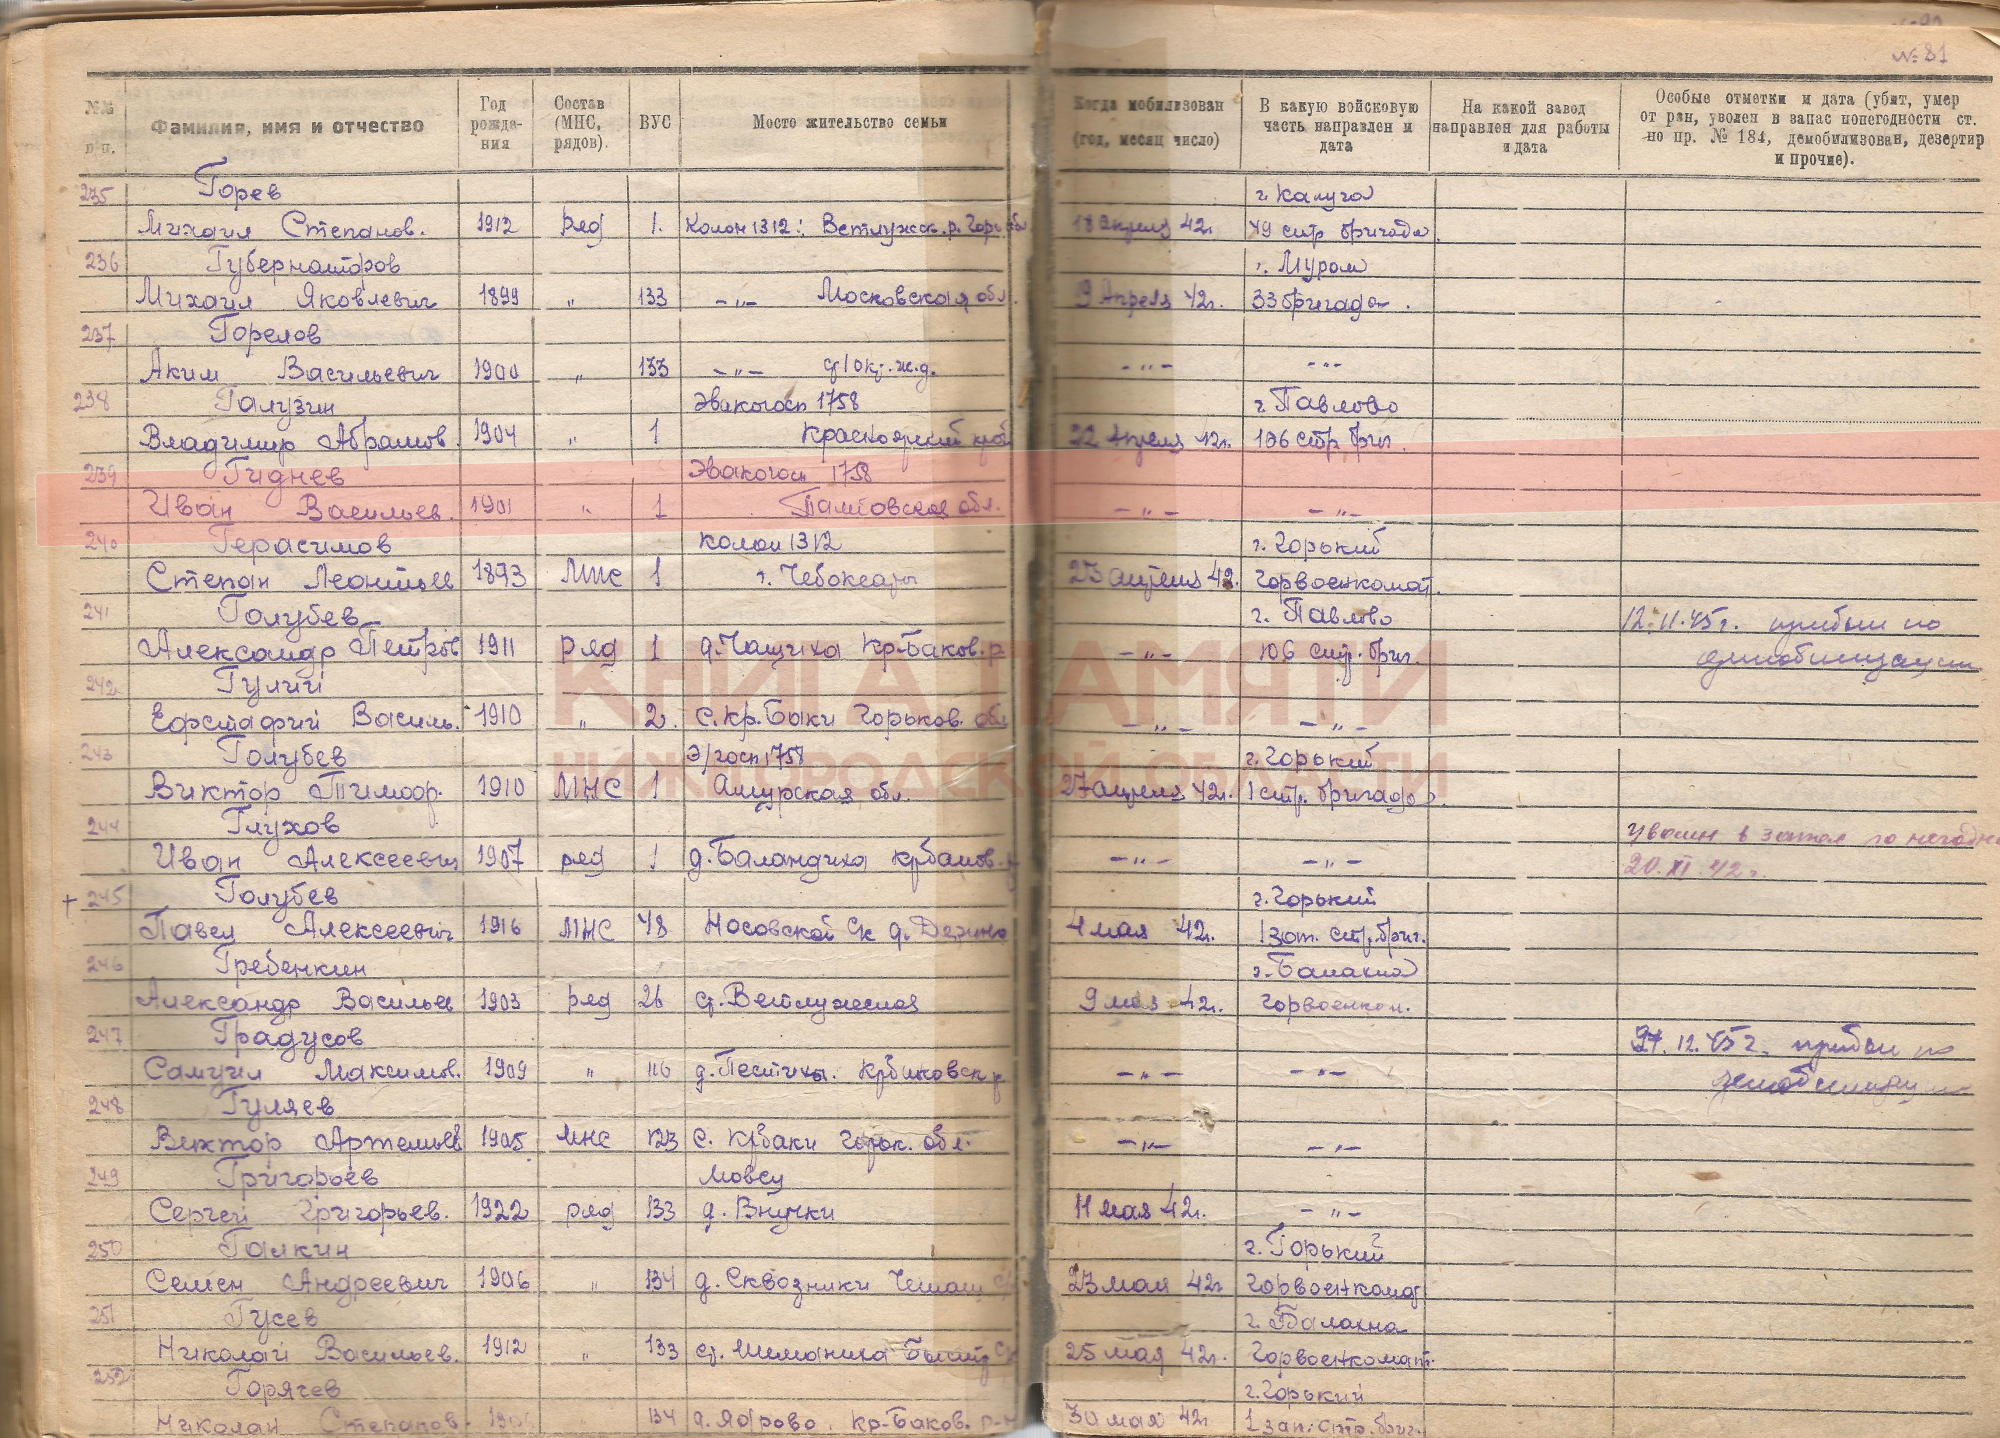 № 81
№№ п.п. Фамилия, имя и отчество Год рождения Состав (МНС, рядов). ВУС Место жительство семьи Когда мобилизован (год, месяц число) В какую войсковую часть направлен и дата На какой завод направлен для работы и дата Особые отметки и дата (убит, умер от ран, уволен в запас по негодности ст. по пр. № 184, демобилизован, дезертир и прочие).
235 Горев г. Калуга
Михаил Степанов. 1912 ряд 1. Колон 1312: Ветлужск. р. Горьк обл 18 апреля 42г. 49 стр бригада
236 Губернаторов г. Муром
Михаил Яковлевич 1899 „ 133 –„– Московская обл. 9 Апреля 42г. 33 бригада
237 Горелов
Аким Васильевич 1900 „ 133 –„– ж.д. –„– –„–
238 Галузин Эвакогосп 1758 г. Павлово
Владимир Абрамов. 1904 „ 1 Красноярский край 22 Апреля 42г. 106 стр. бриг.
239 Гиднев Эвакогосп 1758
Иван Васильев. 1901 „ 1 обл. –„– –„–
240 Герасимов колон 1312 г. Горький
Степан Леонтьев 1893 МНС 1 г. Чебоксары 23 апреля 42. Горвоенкомат.
241 Голубев г. Павлово 12.11.45г. прибыл по
Александр Петров 1911 ряд 1 д. Чащиха Кр-Баков. р –„– 106 стр. бриг. демобилизации
242 Гулий
Ефстафий Василь. 1910 „ 2. с. Кр. Баки Горьков. обл –„– –„–
243 Голубев Э/госп 1758 г. Горький
Виктор Тимофр. 1910 МНС 1 Амурская обл. 27 апреля 42г. 1 стр. бригада
244 Глухов уволен в запас по негодно
Иван Алексеевич 1907 ряд 1 д. Баландиха –„– –„– 20.XI.42г.
+ 245 Голубев г. Горький
Павел Алексеевич 1916 МНС 48 Носовской Ск д. 4 мая 42г. 1 зап. стр. бриг.
246 Гребенкин г. Балахна
Александр Васильев 1903 ряд 26 ст. Ветлужская 9 мая 42г. горвоенком.
247 Градусов 27.12.45г. прибыл по
Самуил Максимов. 1909 „ 116 д. Пестихи. –„– –„– демобилизации
248 Гуляев
Виктор Артемьев 1905 МНС 123 с. Крбаки Горьк. обл. –„– –„–
249 Григорьев
Сергей Григорьев. 1922 ряд 133 д. Внучки 11 мая 42г. –„–
250 Галкин г. Горький
Семен Андреевич 1906 „ 134 д. Сквозники 23 мая 42г Горвоенкомат
251 Гусев г. Балахна
Николай Васильев. 1912 „ 133 ст. Шеманиха 25 мая 42г. Горвоенкомат.
252 Горячев г. Горький
Николай Степанов. 134 д. Ядрово. кр-Баков. р-н 30 мая 42г 1 зап. стр. бриг.
КНИГА ПАМЯТИ
НИЖЕГОРОДСКОЙ ОБЛАСТИ